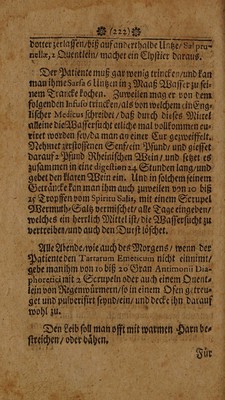 (222)
dotter zerlassen/ biß auf anderthalbe Untze/ Sal pru-
nellæ, 2 Quentlein/ machet ein Clystier daraus.
Der Patiente muß gar wenig trincken/ und kan
man ihme Sarsa 6 Untzen in 2 Maaß Wasser zu sei-
nem Trancke kochen. Zuweilen mag er von dem
folgenden Infuso trincken/ als von welchem ein Eng-
lischer Medicus schreibet/ daß durch dieses Mittel
alleine die Wassersucht etliche mal vollkommen cu-
riret worden sey/ da man an einer Cur gezweiffelt.
Nehmet zerstossenen Senf/ ein Pfund/ und giesset
darauf 2 Pfund Rheinischen Wein/ und setzet es
zusammen in eine digestion 24 Stunden lang/ und
gebet den klaren Wein ein. Und in solchem seinem
Geträncke kan man ihm auch zuweilen von 10 biß
25 Tropffen vom Spiritu Salis, mit einem Scrupel
Wermuth-Saltz vermischet/ alle Tage eingeben/
welches ein herrlich Mittel ist/ die Wassersucht zu
vertreiben/ und auch den Durst löschet.
Alle Abende/ wie auch des Morgens/ wenn der
Patiente den Tartarum Emeticum nicht einnimt/
gebe man ihm von 10 biß 20 Gran Antimonii Dia-
phoretici mit 2 Scrupeln oder auch einem Quent-
lein von Regenwürmern/ so in einem Ofen getreu-
get und pulverisirt seynd/ ein/ und decke ihn darauf
wohl zu.
Den Leib soll man offt mit warmen Harn be-
streichen/ oder bähen.
Für